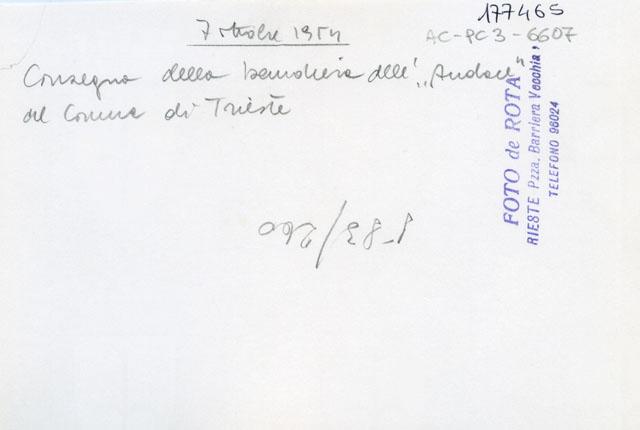 177465
AC-PC3-6607
7 ottobre 1954
Consegna della bandiera dell' „Audace"
al Comune di Trieste
FOTO de ROTA
RIESTE Pzza. Barriera Vecchia,
TELEFONO 96024